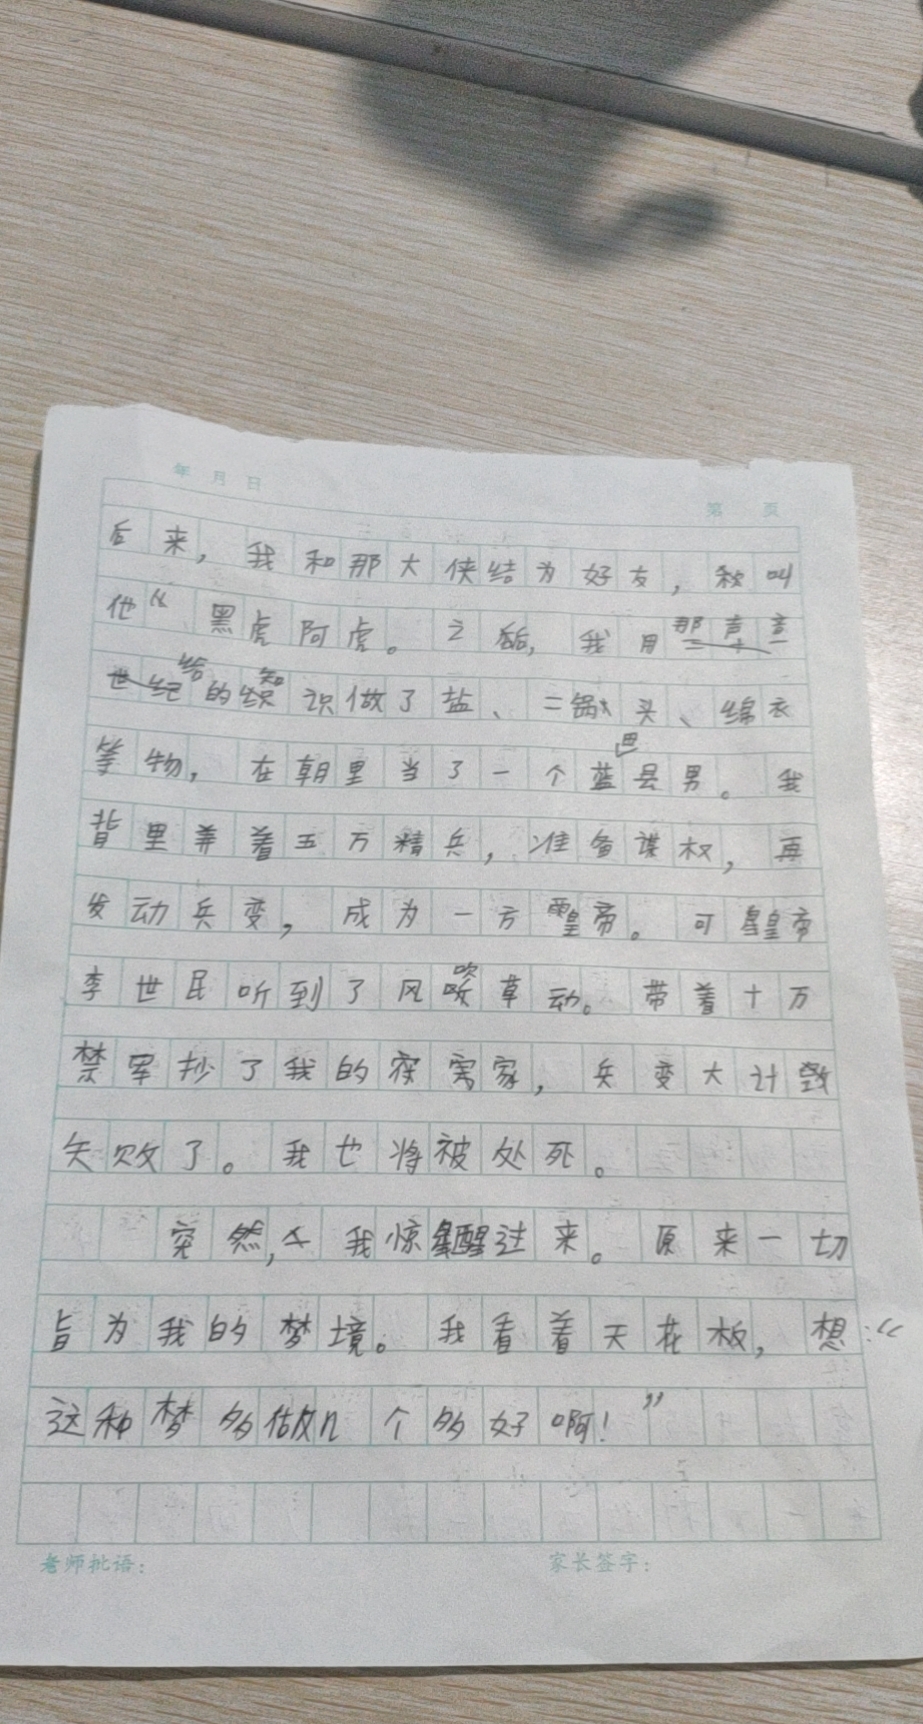 年 月 日
第 页
后来，我和那大侠结为好友，我叫
他“黑虎阿虎。之后，我用那声音
给的知识做了盐、二锅头、绵衣
等物，在朝里当了一个蓝田县男。我
背里养着五万精兵，准备谋权，再
发动兵变，成为一方皇帝。可皇帝
李世民听到了风吹草动。带着十万
禁军抄了我的家，兵变大计
失败了。我也将被处死。
突然，我惊醒过来。原来一切
皆为我的梦境。我看着天花板，想：“
这种梦多做几个多好啊！”
老师批语：
家长签字：